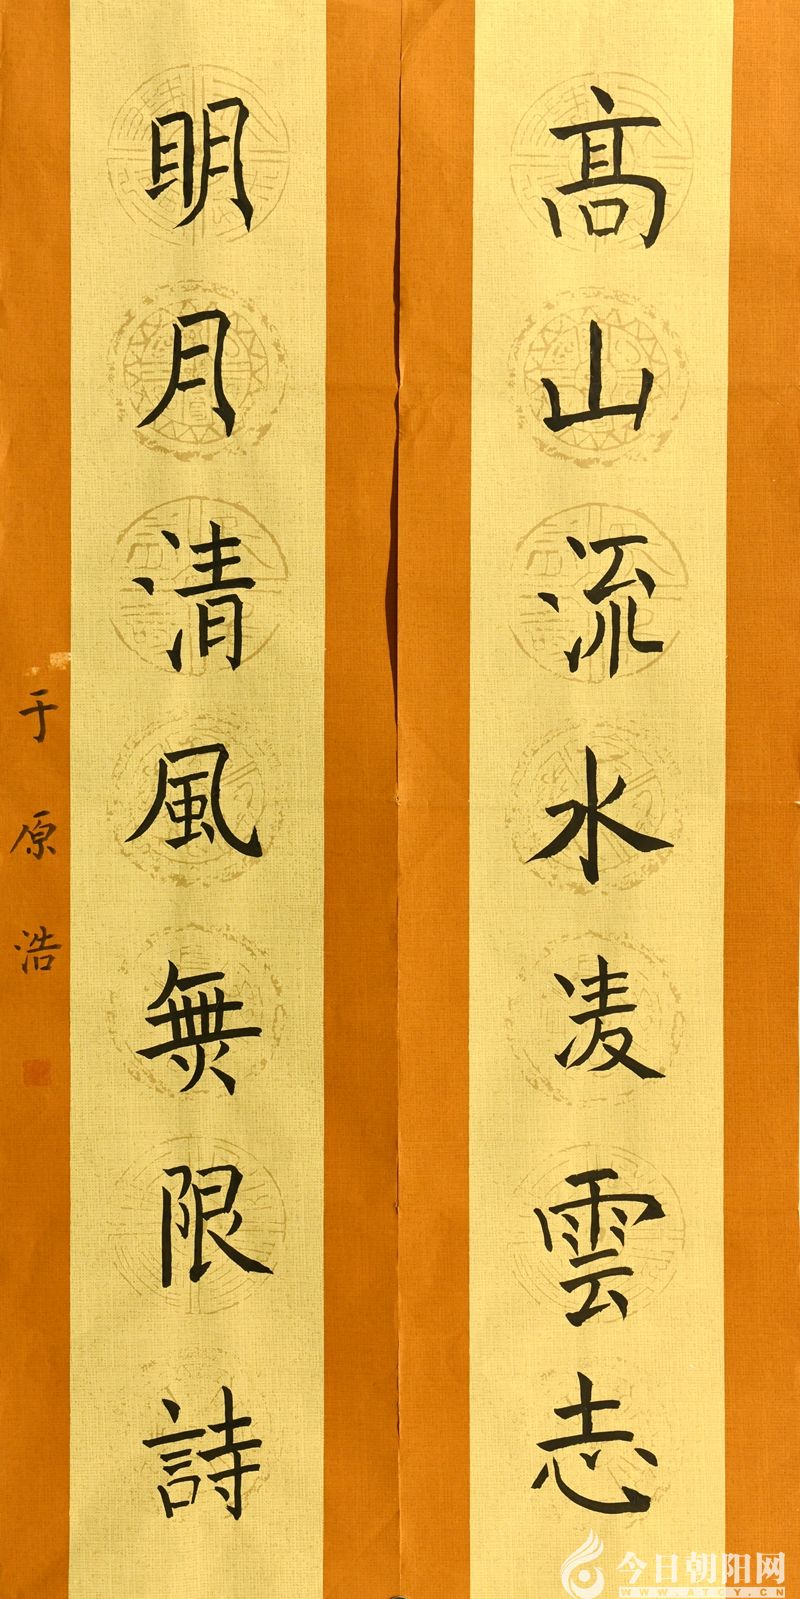 高山流水凌雲志
明月清風無限詩
于原浩
今日朝阳网
WWW.ATCY.CN